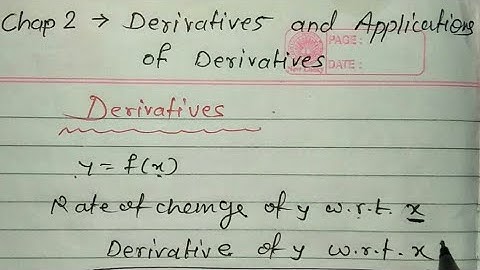 Chap 2 → Derivatives and Applications
of Derivatives
PAGE:
DATE:
Derivatives
y = f(x)
Rate of change of y w.r.t. x
Derivative of y w.r.t. x